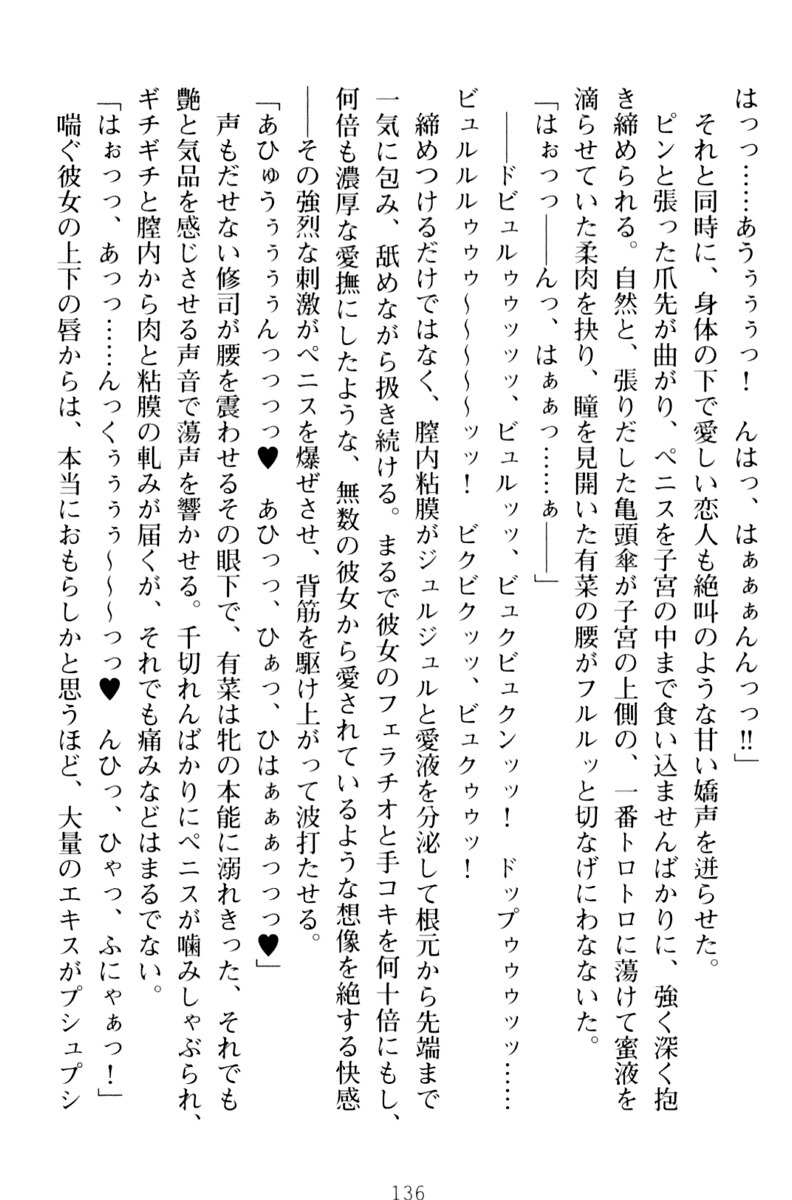 はっっ……あうぅぅぅっ！　んはっ、はぁぁぁんんっっ!!」
　それと同時に、身体の下で愛しい恋人も絶叫のような甘い嬌声を迸らせた。
　ピンと張った爪先が曲がり、ペニスを子宮の中まで食い込ませんばかりに、強く深く抱
き締められる。自然と、張りだした亀頭傘が子宮の上側の、一番トロトロに蕩けて蜜液を
滴らせていた柔肉を抉り、瞳を見開いた有菜の腰がフルルッと切なげにわなないた。
「はぉっっ――んっ、はぁぁっ……ぁ――」
　――ドビュルゥゥッッッ、ビュルッッ、ビュクビュクンッッ！　ドップゥゥゥッッ……
ビュルルルゥゥゥ～～～～～ッッ！　ビクビクッッ、ビュクゥゥッ！
　締めつけるだけではなく、膣内粘膜がジュルジュルと愛液を分泌して根元から先端まで
一気に包み、舐めながら扱き続ける。まるで彼女のフェラチオと手コキを何十倍にもし、
何倍も濃厚な愛撫にしたような、無数の彼女から愛されているような想像を絶する快感
――その強烈な刺激がペニスを爆ぜさせ、背筋を駆け上がって波打たせる。
「あひゅうぅぅぅぅんっっっっ♥　あひっっ、ひぁっっ、ひはぁぁぁっっっ♥」
　声もだせない修司が腰を震わせるその眼下で、有菜は牝の本能に溺れきった、それでも
艶と気品を感じさせる声音で蕩声を響かせる。千切れんばかりにペニスが噛みしゃぶられ、
ギチギチと膣内から肉と粘膜の軋みが届くが、それでも痛みなどはまるでない。
「はぉっっ、あっっ……んっくぅぅぅぅ～～～っっ♥　んひっ、ひゃっ、ふにゃぁっ！」
　喘ぐ彼女の上下の唇からは、本当におもらしかと思うほど、大量のエキスがプシュプシ
136